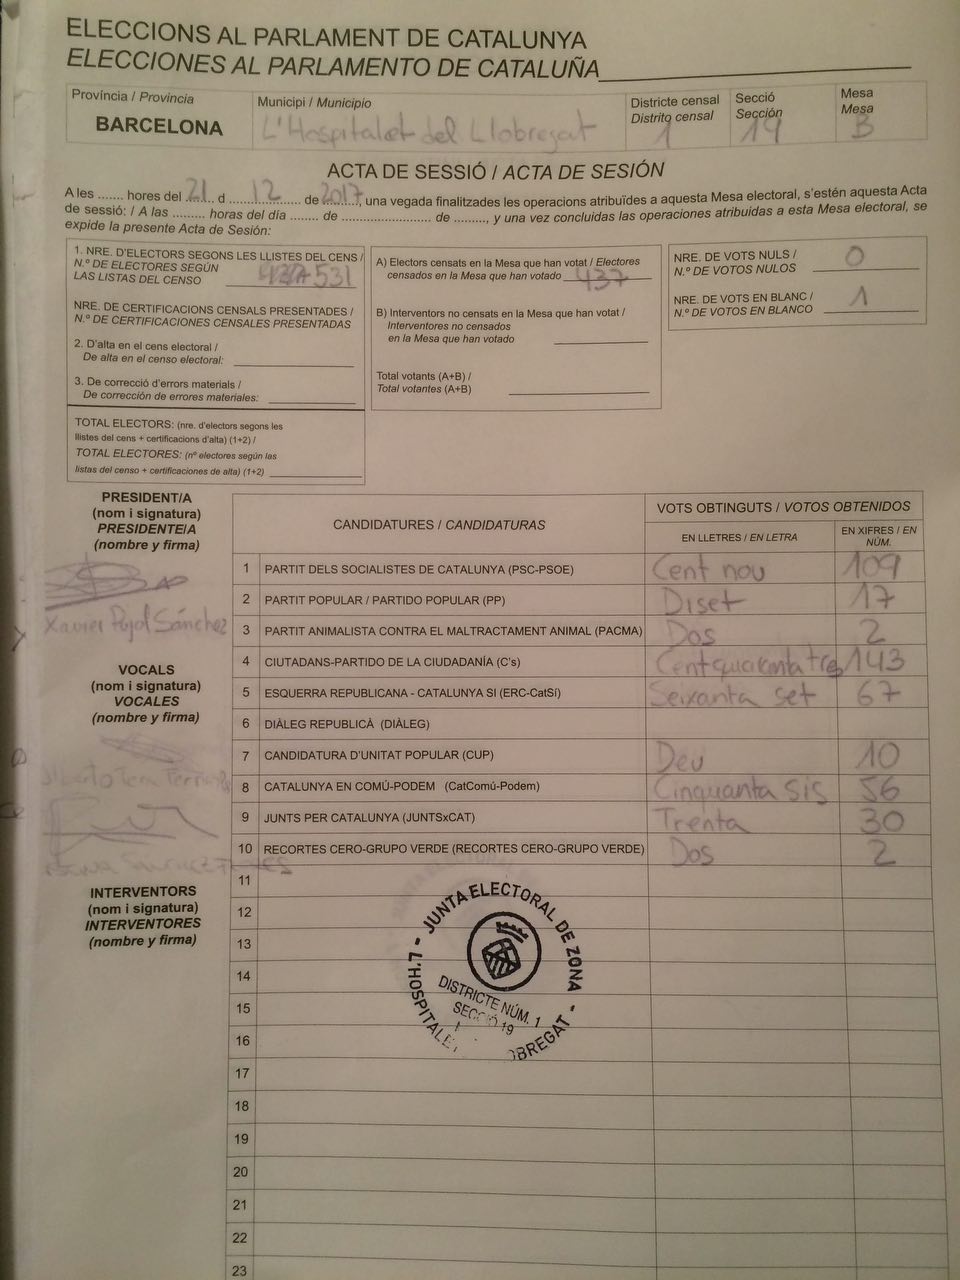 ELECCIONS AL PARLAMENT DE CATALUNYA
ELECCIONES AL PARLAMENTO DE CATALUÑA
Província / Provincia
BARCELONA
Municipi / Municipio
L'Hospitalet del Llobregat
Districte censal
Distrito censal
1
Secció
Sección
19
Mesa
Mesa
B
ACTA DE SESSIÓ / ACTA DE SESIÓN
A les ....... hores del 21 d 12 de 2017, una vegada finalitzades les operacions atribuïdes a aquesta Mesa electoral, s'estén aquesta Acta
de sessió: / A las ......... horas del día ........ de ........................ de ........., y una vez concluidas las operaciones atribuidas a esta Mesa electoral, se
expide la presente Acta de Sesión:
1. NRE. D'ELECTORS SEGONS LES LLISTES DEL CENS /
N.º DE ELECTORES SEGÚN
LAS LISTAS DEL CENSO 531
NRE. DE CERTIFICACIONS CENSALS PRESENTADES /
N.º DE CERTIFICACIONES CENSALES PRESENTADAS
2. D'alta en el cens electoral /
De alta en el censo electoral:
3. De correcció d'errors materials /
De corrección de errores materiales:
TOTAL ELECTORS: (nre. d'electors segons les
llistes del cens + certificacions d'alta) (1+2) /
TOTAL ELECTORES: (nº electores según las
listas del censo + certificaciones de alta) (1+2)
A) Electors censats en la Mesa que han votat / Electores
censados en la Mesa que han votado 437
B) Interventors no censats en la Mesa que han votat /
Interventores no censados
en la Mesa que han votado
Total votants (A+B) /
Total votantes (A+B)
NRE. DE VOTS NULS /
N.º DE VOTOS NULOS 0
NRE. DE VOTS EN BLANC /
N.º DE VOTOS EN BLANCO 1
PRESIDENT/A
(nom i signatura)
PRESIDENTE/A
(nombre y firma)
Xavier Pujol Sánchez
VOCALS
(nom i signatura)
VOCALES
(nombre y firma)
INTERVENTORS
(nom i signatura)
INTERVENTORES
(nombre y firma)
CANDIDATURES / CANDIDATURAS
VOTS OBTINGUTS / VOTOS OBTENIDOS
EN LLETRES / EN LETRA
EN XIFRES / EN
NÚM.
1 PARTIT DELS SOCIALISTES DE CATALUNYA (PSC-PSOE) Cent nou 109
2 PARTIT POPULAR / PARTIDO POPULAR (PP) Diset 17
3 PARTIT ANIMALISTA CONTRA EL MALTRACTAMENT ANIMAL (PACMA) Dos 2
4 CIUTADANS-PARTIDO DE LA CIUDADANÍA (C's) Cent quaranta tres 143
5 ESQUERRA REPUBLICANA - CATALUNYA SI (ERC-CatSí) Seixanta set 67
6 DIÀLEG REPUBLICÀ (DIÀLEG)
7 CANDIDATURA D'UNITAT POPULAR (CUP) Deu 10
8 CATALUNYA EN COMÚ-PODEM (CatComú-Podem) Cinquanta sis 56
9 JUNTS PER CATALUNYA (JUNTSxCAT) Trenta 30
10 RECORTES CERO-GRUPO VERDE (RECORTES CERO-GRUPO VERDE) Dos 2
11
12
13
14
15
16
17
18
19
20
21
22
23
JUNTA ELECTORAL DE ZONA
DISTRICTE NÚM. 1
SECCIÓ 19